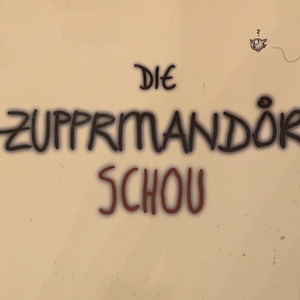 ?
DIE
ZUPPRMANDÖR
SCHOU